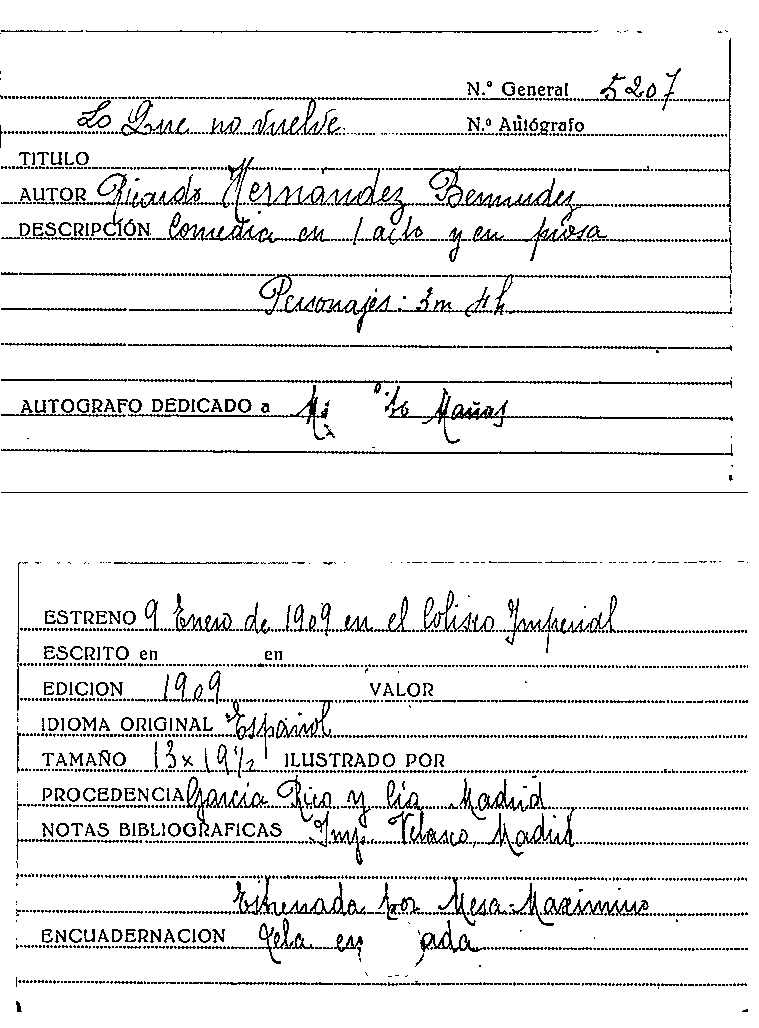 N.º General 5207
Lo Que no vuelve N.º Autógrafo
TITULO
AUTOR Ricardo Hernández Bermudez
DESCRIPCIÓN Comedia en 1 acto y en prosa
Personajes: 3m 4h
AUTOGRAFO DEDICADO a Mañas
ESTRENO 9 Enero de 1909 en el Coliseo Imperial
ESCRITO en en
EDICION 1909 VALOR
IDIOMA ORIGINAL Español
TAMAÑO 13x19½ ILUSTRADO POR
PROCEDENCIA García Rico y Cía Madrid
NOTAS BIBLIOGRAFICAS Imp. Velasco, Madrid
Estrenada por Mesa-Maximino
ENCUADERNACION Tela